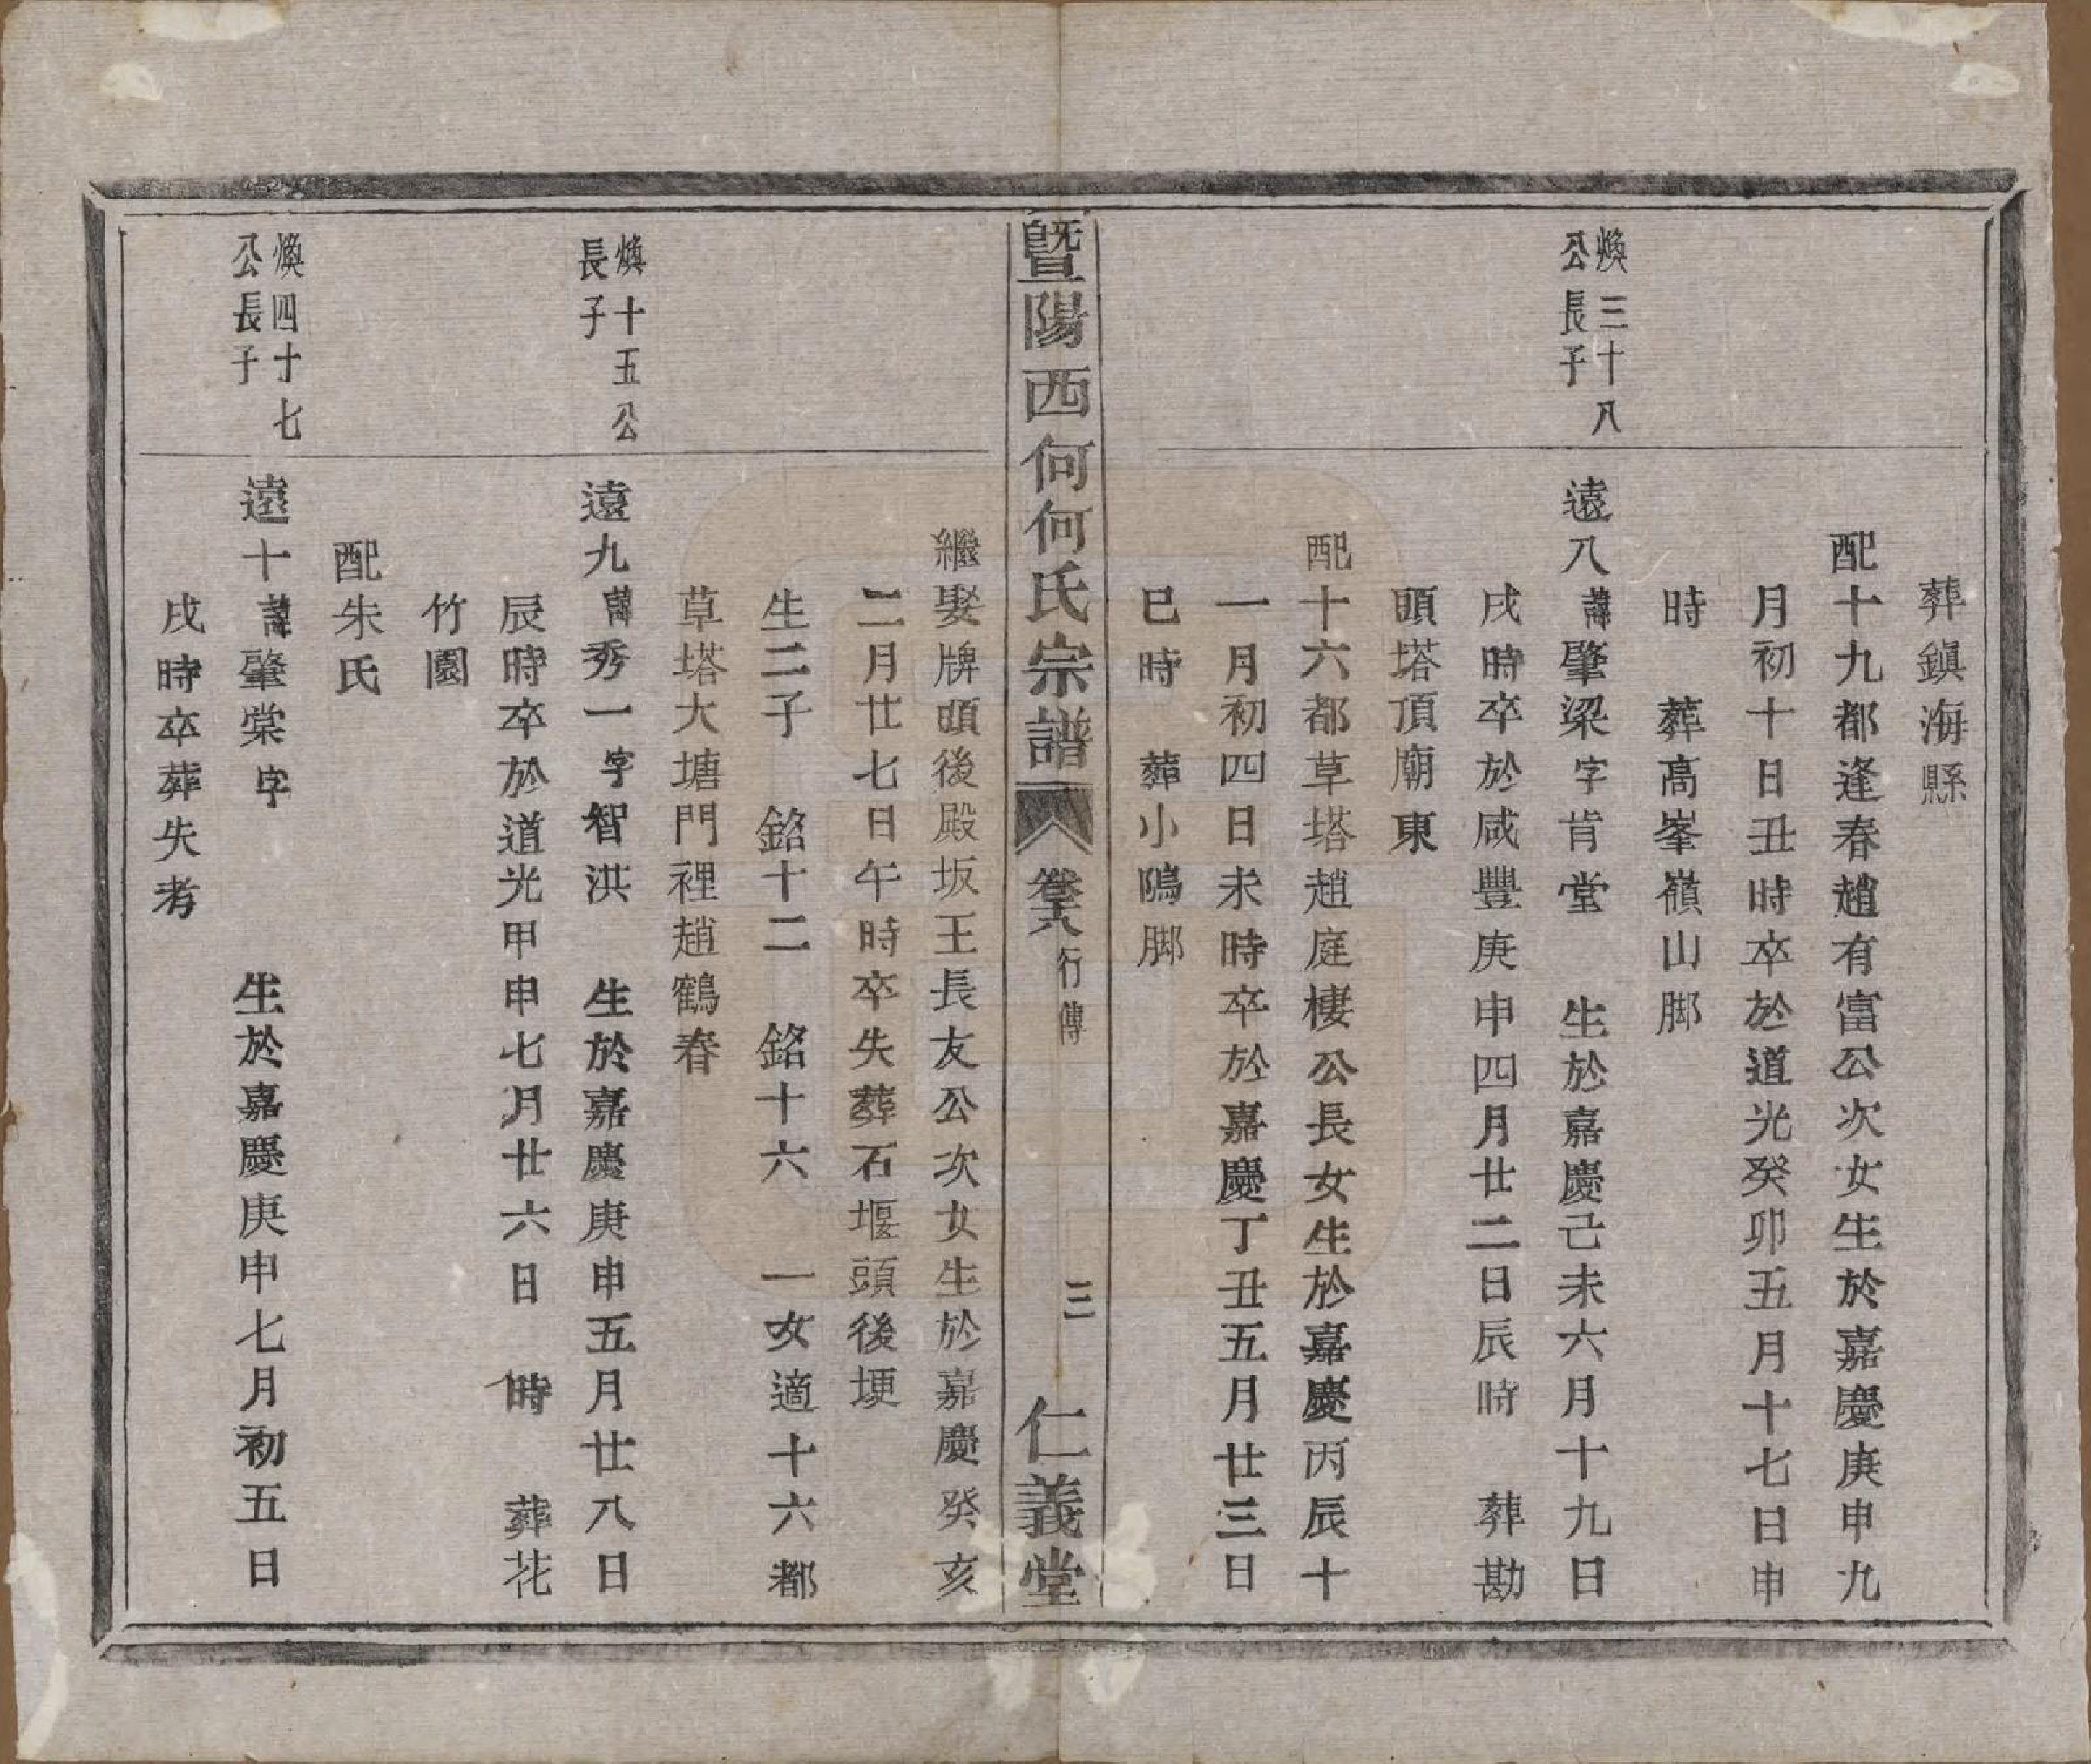 葬鎮海縣
配十九都逢春趙有富公次女生於嘉慶庚申九
月初十日丑時卒於道光癸卯五月十七日申
時　葬高峯嶺山脚
煥三十八
公長子
遠八諱肇梁字肯堂　生於嘉慶己未六月十九日
戌時卒於咸豐庚申四月廿二日辰時　葬勘
頭塔頂廟東
配十六都草塔趙庭棲公長女生於嘉慶丙辰十
一月初四日未時卒於嘉慶丁丑五月廿三日
巳時　葬小隝脚
暨陽西何何氏宗譜　卷六　行傳　三　仁義堂
繼娶牌頭後殿坂王長友公次女生於嘉慶癸亥
二月廿七日午時卒失葬石堰頭後埂
生二子　銘十二　銘十六　一女適十六都
草塔大塘門裡趙鶴春
煥十五公
長子
遠九諱秀一字智洪　生於嘉慶庚申五月廿八日
辰時卒於道光甲申七月廿六日　時　葬花
竹園
配朱氏
煥四十七
公長子
遠十諱肇棠字　　生於嘉慶庚申七月初五日
戌時卒葬失考